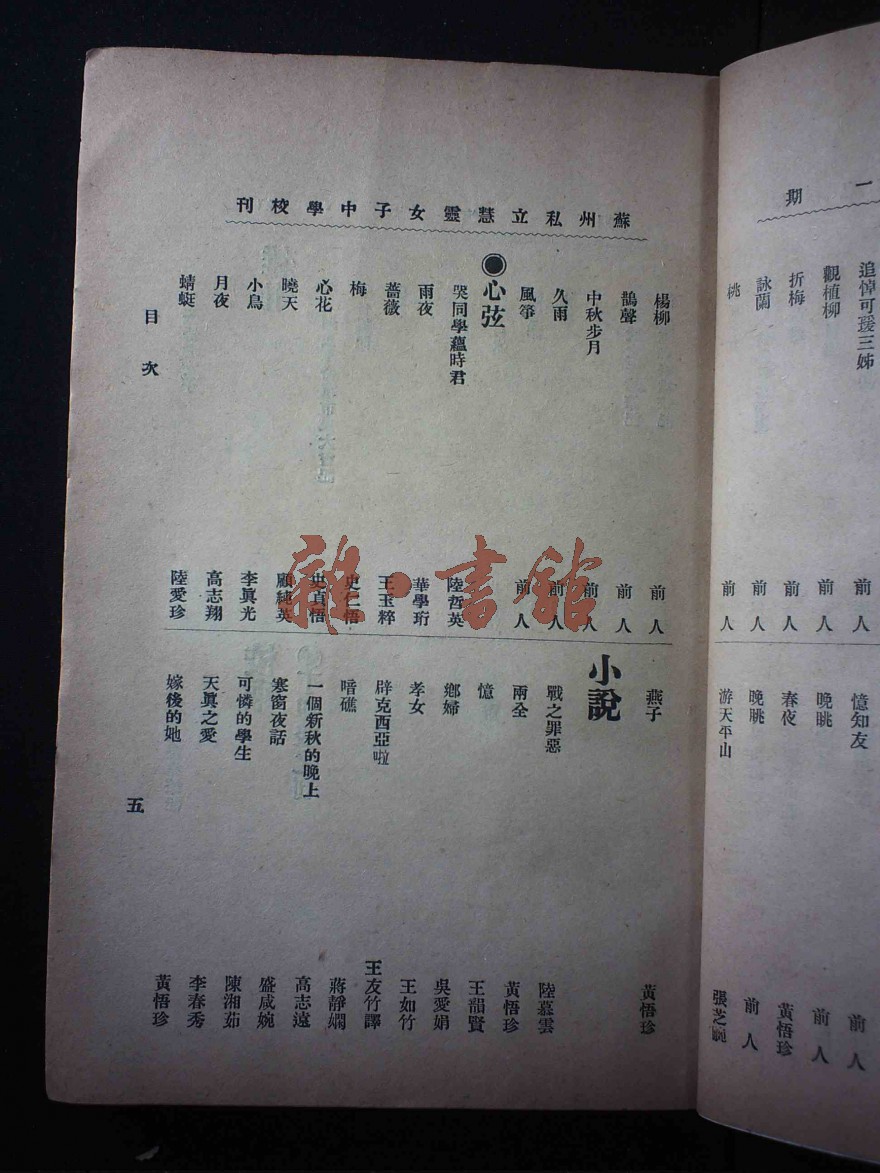 一期
追悼可瑗三姊 前人
觀植柳 前人
折梅 前人
詠蘭 前人
桃 前人
憶知友 前人
晚眺 前人
春夜 黃悟珍
晚眺 前人
游天平山 張芝
蘇州私立慧靈女子中學校刊
楊柳 前人
鵲聲 前人
中秋步月 前人
久雨 前人
風箏 前人
◉心弦
哭同學蘊時君 陸哲英
雨夜 華學珩
薔薇 王玉粹
梅 史仁悟
心花 史貞悟
曉天 顧純英
小鳥 李眞光
月夜 高志翔
蜻蜓 陸愛珍
燕子 黃悟珍
小說
戰之罪惡 陸慕雲
兩全 黃悟珍
憶 王韻賢
鄉婦 吳愛娟
孝女 王如竹
辟克西亞啦 王友竹譯
暗礁 蔣靜嫻
一個新秋的晚上 高志遠
寒窗夜話 盛咸婉
可憐的學生 陳湘茹
天眞之愛 李春秀
嫁後的她 黃悟珍
目次
五
雜·書館